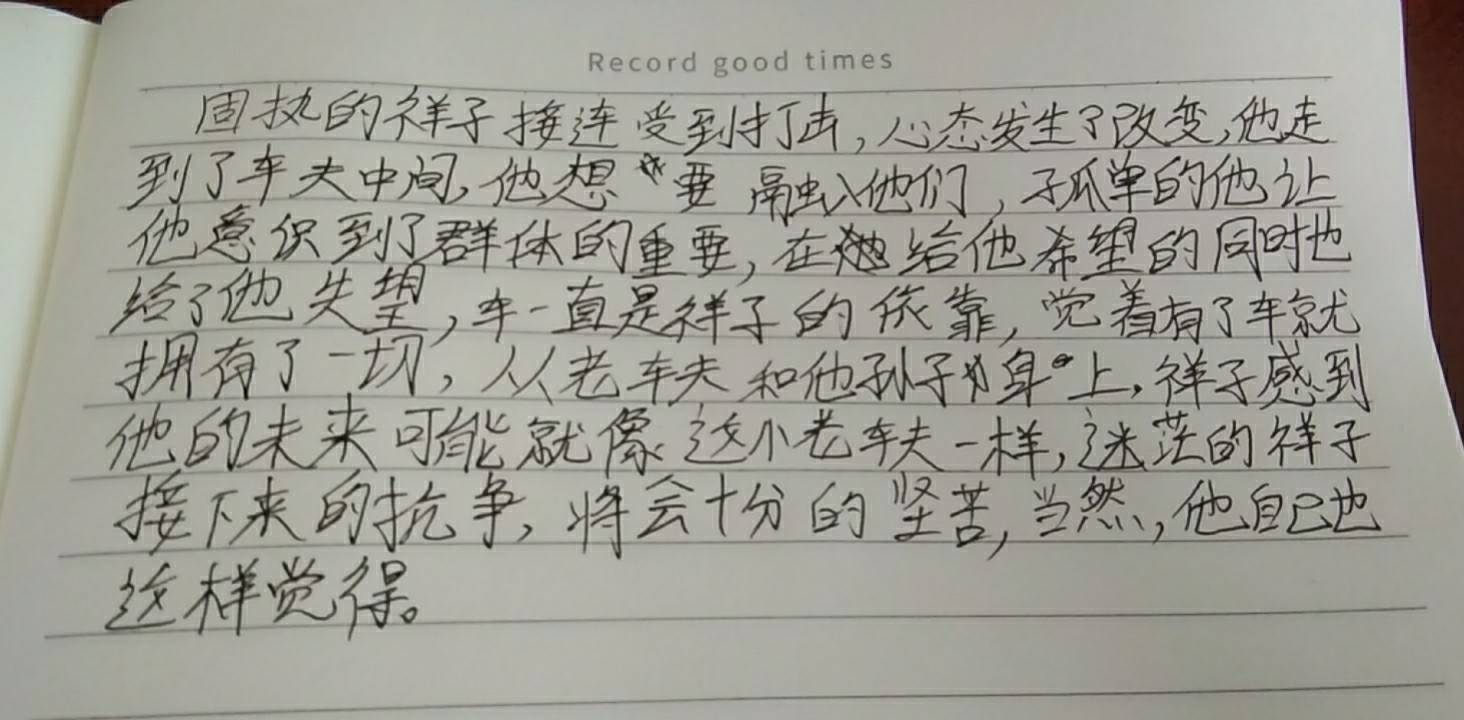 Record good times
固执的祥子接连受到打击,心态发生了改变,他走
到了车夫中间,他想要融入他们,孤单的他让
他意识到了群体的重要,在他给他希望的同时也
给了他失望,车一直是祥子的依靠,觉着有了车就
拥有了一切,从老车夫和他孙子身上,祥子感到
他的未来可能就像这小老车夫一样,迷茫的祥子
接下来的抗争,将会十分的坚苦,当然,他自己也
这样觉得。